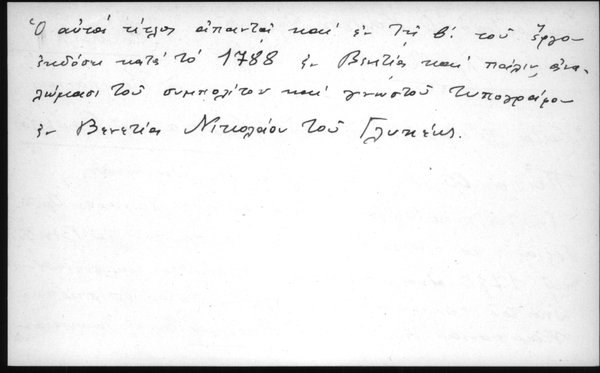 Ὁ αὐτός τίτλος ἀπαντᾷ καί ἐν τῇ β΄. τοῦ ἔργου
ἐκδόσει κατά τό 1788 ἐν Βενετίᾳ καί πάλιν ἀνα-
λώμασι τοῦ συμπολίτου καί γνωστοῦ τυπογράφου
ἐν Βενετίᾳ Νικολάου τοῦ Γλυκέως.